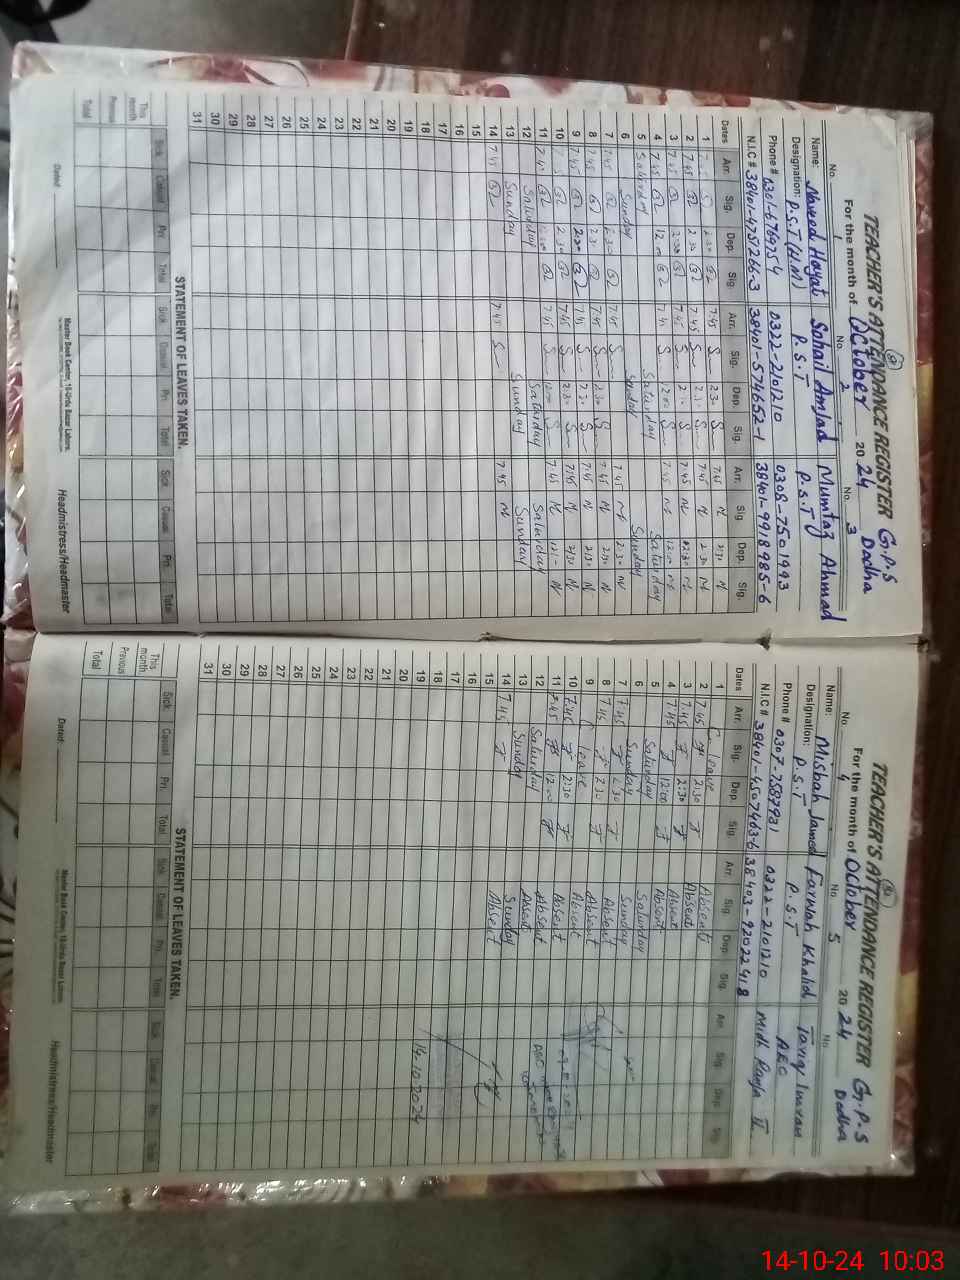 TEACHER'S ATTENDANCE REGISTER G.P.S
For the month of October 2024 Dodha
No. 1 No. 2 No. 3
Name: Naveed Hayat Sohail Amjad Mumtaz Ahmad
Designation: P.S.T (H.M) P.S.T P.S.T
Phone # 0301-6769754 0322-2101210 0308-7501993
N.I.C # 38401-4751266-3 38401-5746652-1 38401-9918985-6
Dates Arr. Sig. Dep. Sig. Arr. Sig. Dep. Sig. Arr. Sig Dep. Sig.
1 2:30 7:45 2:30 7:45 2:30
2 7:45 2:30 7:45 2:30 7:45 2:30
3 7:45 2:30 7:45 7:45 2:30
4 7:45 12:00 7:45 12:00 7:45 12:00
5 Saturday Saturday Saturday
6 Sunday Sunday Sunday
7 7:45 2:30 7:45 7:45 2:30
8 7:45 2:30 7:45 2:30 7:45 2:30
9 7:45 2:30 7:45 2:30 7:45 2:30
10 2:30 7:45 2:30 7:45 2:30
11 7:45 7:45 12:00 7:45
12 Saturday Saturday Saturday
13 Sunday Sunday Sunday
14 7:45 7:45 7:45
15
16
17
18
19
20
21
22
23
24
25
26
27
28
29
30
31
STATEMENT OF LEAVES TAKEN.
Sick Casual Pri Total Sick Casual Pri Total Sick Casual Pri. Total
This month
Previous
Total
Master Book Center, 10-Urdu Bazar Lahore.
Dated Headmistress/Headmaster
TEACHER'S ATTENDANCE REGISTER G.P.S
For the month of October 2024 Dodha
No. 4 No 5 No
Name: Misbah Javed Farwah Khalid Tariq Imran
Designation: P.S.T P.S.T AEO
Phone # 0307-7587931 0322-2101210 Midh Ranja II
N.I.C # 38401-4507463-6 38403-9202241 8
Dates Arr. Sig. Dep. Sig. Arr. Sig. Dep. Sig. Arr. Sig. Dep. Sig.
1 leave Absent
2 7:45 2:30 Absent
3 7:45 2:30 Absent
4 7:45 12:00 Absent
5 Saturday Saturday
6 Sunday Sunday
7 7:45 2:30 Absent
8 7:45 2:30 Absent
9 leave Absent
10 7:45 2:30 Absent
11 7:45 12:00 Absent
12 Saturday
13 Sunday Sunday
14 7:45 Absent
15
16
17
18
19 14.10.2024
20
21
22
23
24
25
26
27
28
29
30
31
STATEMENT OF LEAVES TAKEN.
Sick Casual Pri Total Sick Casual Pri. Total Sick Casual Pri. Total
This month
Previous
Total
Master Book Center, 10-Urdu Bazar Lahore.
Dated: Headmistress/Headmaster
14-10-24 10:03